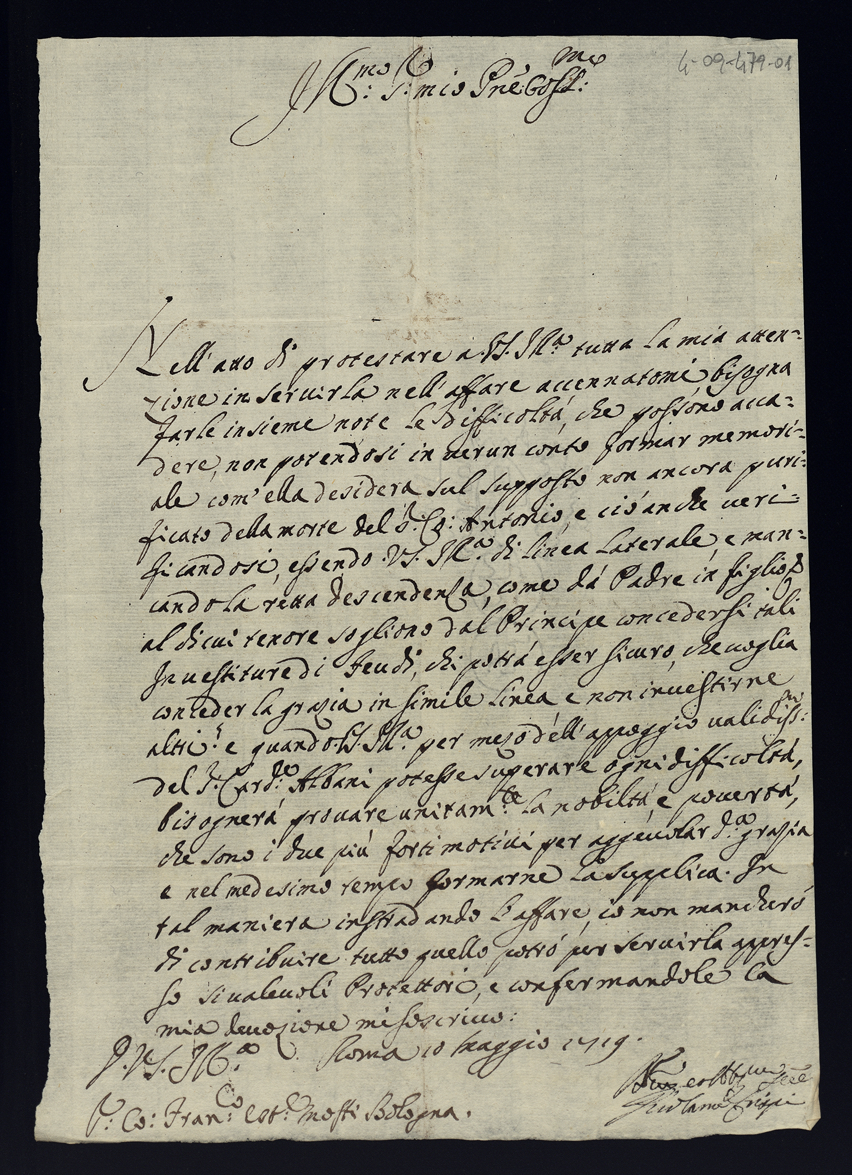 4-09-479-01
Ill:mo S: mio P͞ne: Coss:mo
Nell'atto di protestare a VS. Ill:a tutta la mia atten=
zione in servirla nell'affare accennatomi bisogna
farle insieme note le difficoltá, che possono acca=
dere, non potendosi in verun conto formar memori=
ale com'ella desidera sul supposto non ancora puri=
ficato della morte del S: Co: Antonio, e ció anche veri=
ficandosi, essendo VS. Ill:a di linea laterale, e man=
cando la retta descendenza, come dá Padre in figlio,
al di cui tenore sogliono dal Principe concedersi tali
Investiture di Feudi, chi potrá esser sicuro, che voglia
conceder la grazia in simile linea e non investirne
altri? e quando VS. Ill:a per mezo dell'appoggio validiss:mo
del S: Card:e Albani potesse superare ogni difficoltá,
bisognerá provare unitam:te la nobiltá, e povertá,
che sono i due piú forti motivi per aggevolar d:a grazia
e nel medesimo tempo formarne la supplica. In
tal maniera instradando l'affare, io non mancheró
di contribuire tutto quello potró per servirla appres=
so si valevoli Protettori, e confermandole la
mia devozione mi soscrivo:
D. VS. Ill:a Roma 10 Maggio 1719.
S: Co: Fran:co Est:e Mosti Bologna.
Girolamo Crispi